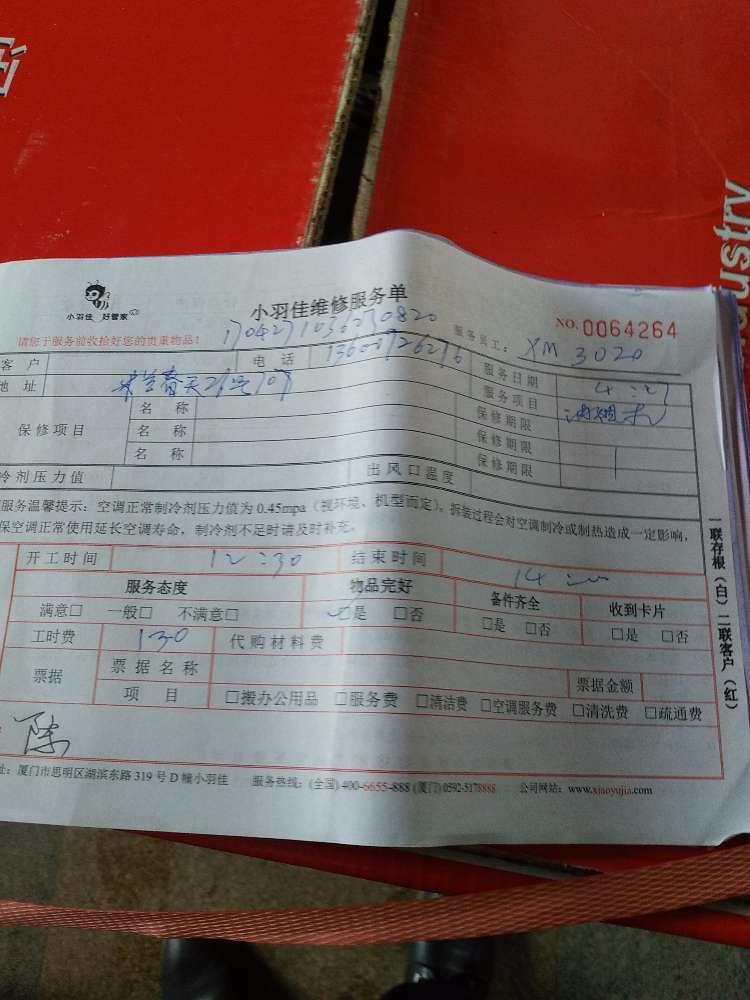 ustry
小羽佳 好管家
小羽佳维修服务单
NO. 0064264
请您于服务前收拾好您的贵重物品!
1704271036270820
服务员工: XM 3020
客户
电话
服务日期
4:27
地址
服务项目
保修项目
名称
保修期限
名称
保修期限
名称
保修期限
冷剂压力值
出风口温度
服务温馨提示:空调正常制冷剂压力值为 0.45mpa(视环境、机型而定)。拆装过程会对空调制冷或制热造成一定影响,
保空调正常使用延长空调寿命,制冷剂不足时请及时补充。
开工时间 12:30 结束时间 14:
服务态度 物品完好 备件齐全 收到卡片
满意□ 一般□ 不满意□ □是 □否 □是 □否 □是 □否
工时费 130 代购材料费
票据 票据名称 票据金额
项目 □搬办公用品 □服务费 □清洁费 □空调服务费 □清洗费 □疏通费
陈
址:厦门市思明区湖滨东路 319 号 D 幢小羽佳 服务热线:(全国) 400-6655-888 (厦门) 0592-5178888 公司网站:www.xiaoyujia.com
一联存根(白)二联客户(红)